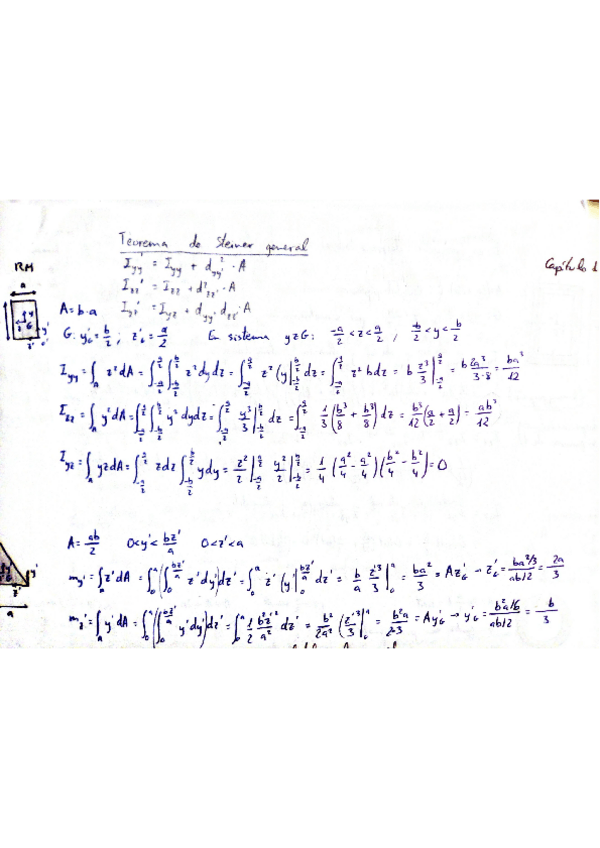 Teorema de Steiner general
RM
I_yy' = I_yy + d²_yy' · A
Capítulo 1
a
I_zz' = I_zz + d²_zz' · A
A = b·a
I_yz' = I_yz + d_yy' d_zz' · A
G: y'_G = b/2 ; z'_G = a/2 En sistema yzG: -a/2 < z < a/2 , -b/2 < y < -b/2
I_yy = ∫_A z² dA = ∫_{-a/2}^{a/2} ∫_{-b/2}^{b/2} z² dy dz = ∫_{-a/2}^{a/2} z² (y|_{-b/2}^{b/2} dz = ∫_{-a/2}^{a/2} z² b dz = b z³/3 |_{-a/2}^{a/2} = b 2a³/3·8 = ba³/12
I_zz = ∫_A y² dA = ∫_{-a/2}^{a/2} ∫_{-b/2}^{b/2} y² dy dz = ∫_{-a/2}^{a/2} y³/3 |_{-b/2}^{b/2} dz = ∫_{-a/2}^{a/2} 1/3 (b³/8 + b³/8) dz = b³/12 (a/2 + a/2) = ab³/12
I_yz = ∫_A yz dA = ∫_{-a/2}^{a/2} z dz ∫_{-b/2}^{b/2} y dy = z²/2 |_{-a/2}^{a/2} y²/2 |_{-b/2}^{b/2} = 1/4 (a²/4 - a²/4) (b²/4 - b²/4) = 0
A = ab/2 0 < y' < bz'/a 0 < z' < a
m_y' = ∫_A z' dA = ∫_0^a (∫_0^{bz'/a} z' dy') dz' = ∫_0^a z' (y|_0^{bz'/a} dz' = b/a z'³/3 |_0^a = ba²/3 = A z'_G → z'_G = ba²/3 / ab/2 = 2a/3
a
m_z' = ∫_A y' dA = ∫_0^a (∫_0^{bz'/a} y' dy') dz' = ∫_0^a 1/2 b²z'²/a² dz' = b²/2a² (z'³/3 |_0^a = b²a/2·3 = A y'_G → y'_G = b²a/6 / ab/2 = b/3